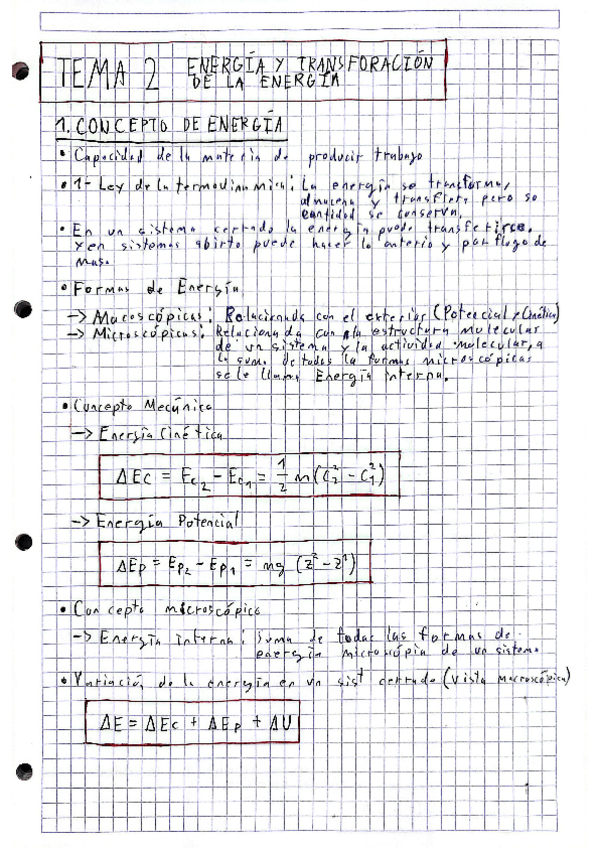 TEMA 2 ENERGÍA Y TRANSFORACIÓN
DE LA ENERGÍA
1. CONCEPTO DE ENERGÍA
• Capacidad de la materia de producir trabajo
• 1ª Ley de la termodinamica: La energía se transforma,
almacena y transfiere pero su
cantidad se conserva.
• En un sistema cerrado la energía puede transferirse.
Y en sistemas abierto puede hacer lo anterio y por flugo de
masa.
• Formas de Energía
-> Macoscópicas: Relacionada con el exterior (Potencial y Cinética)
-> Microscópicas: Relacionada con la estructura molecular
de un sistema y la actividad molecular, a
la suma de todas la formas microscópicas
se le llama Energía interna.
• Concepto Mecánico
-> Energía Cinética
ΔEc = Ec2 - Ec1 = 1/2 m (C2² - C1²)
-> Energía Potencial
ΔEp = Ep2 - Ep1 = mg (z² - z¹)
• Concepto microscópico
-> Energía interna: Suma de todas las formas de
energía microscópia de un sistema
• Variación de la energía en un sist cerrado (Vista macroscópica)
ΔE = ΔEc + ΔEp + ΔU